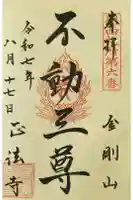 奉拝
第六番
金剛山
不動三尊
令和七年
八月十七日
正法寺